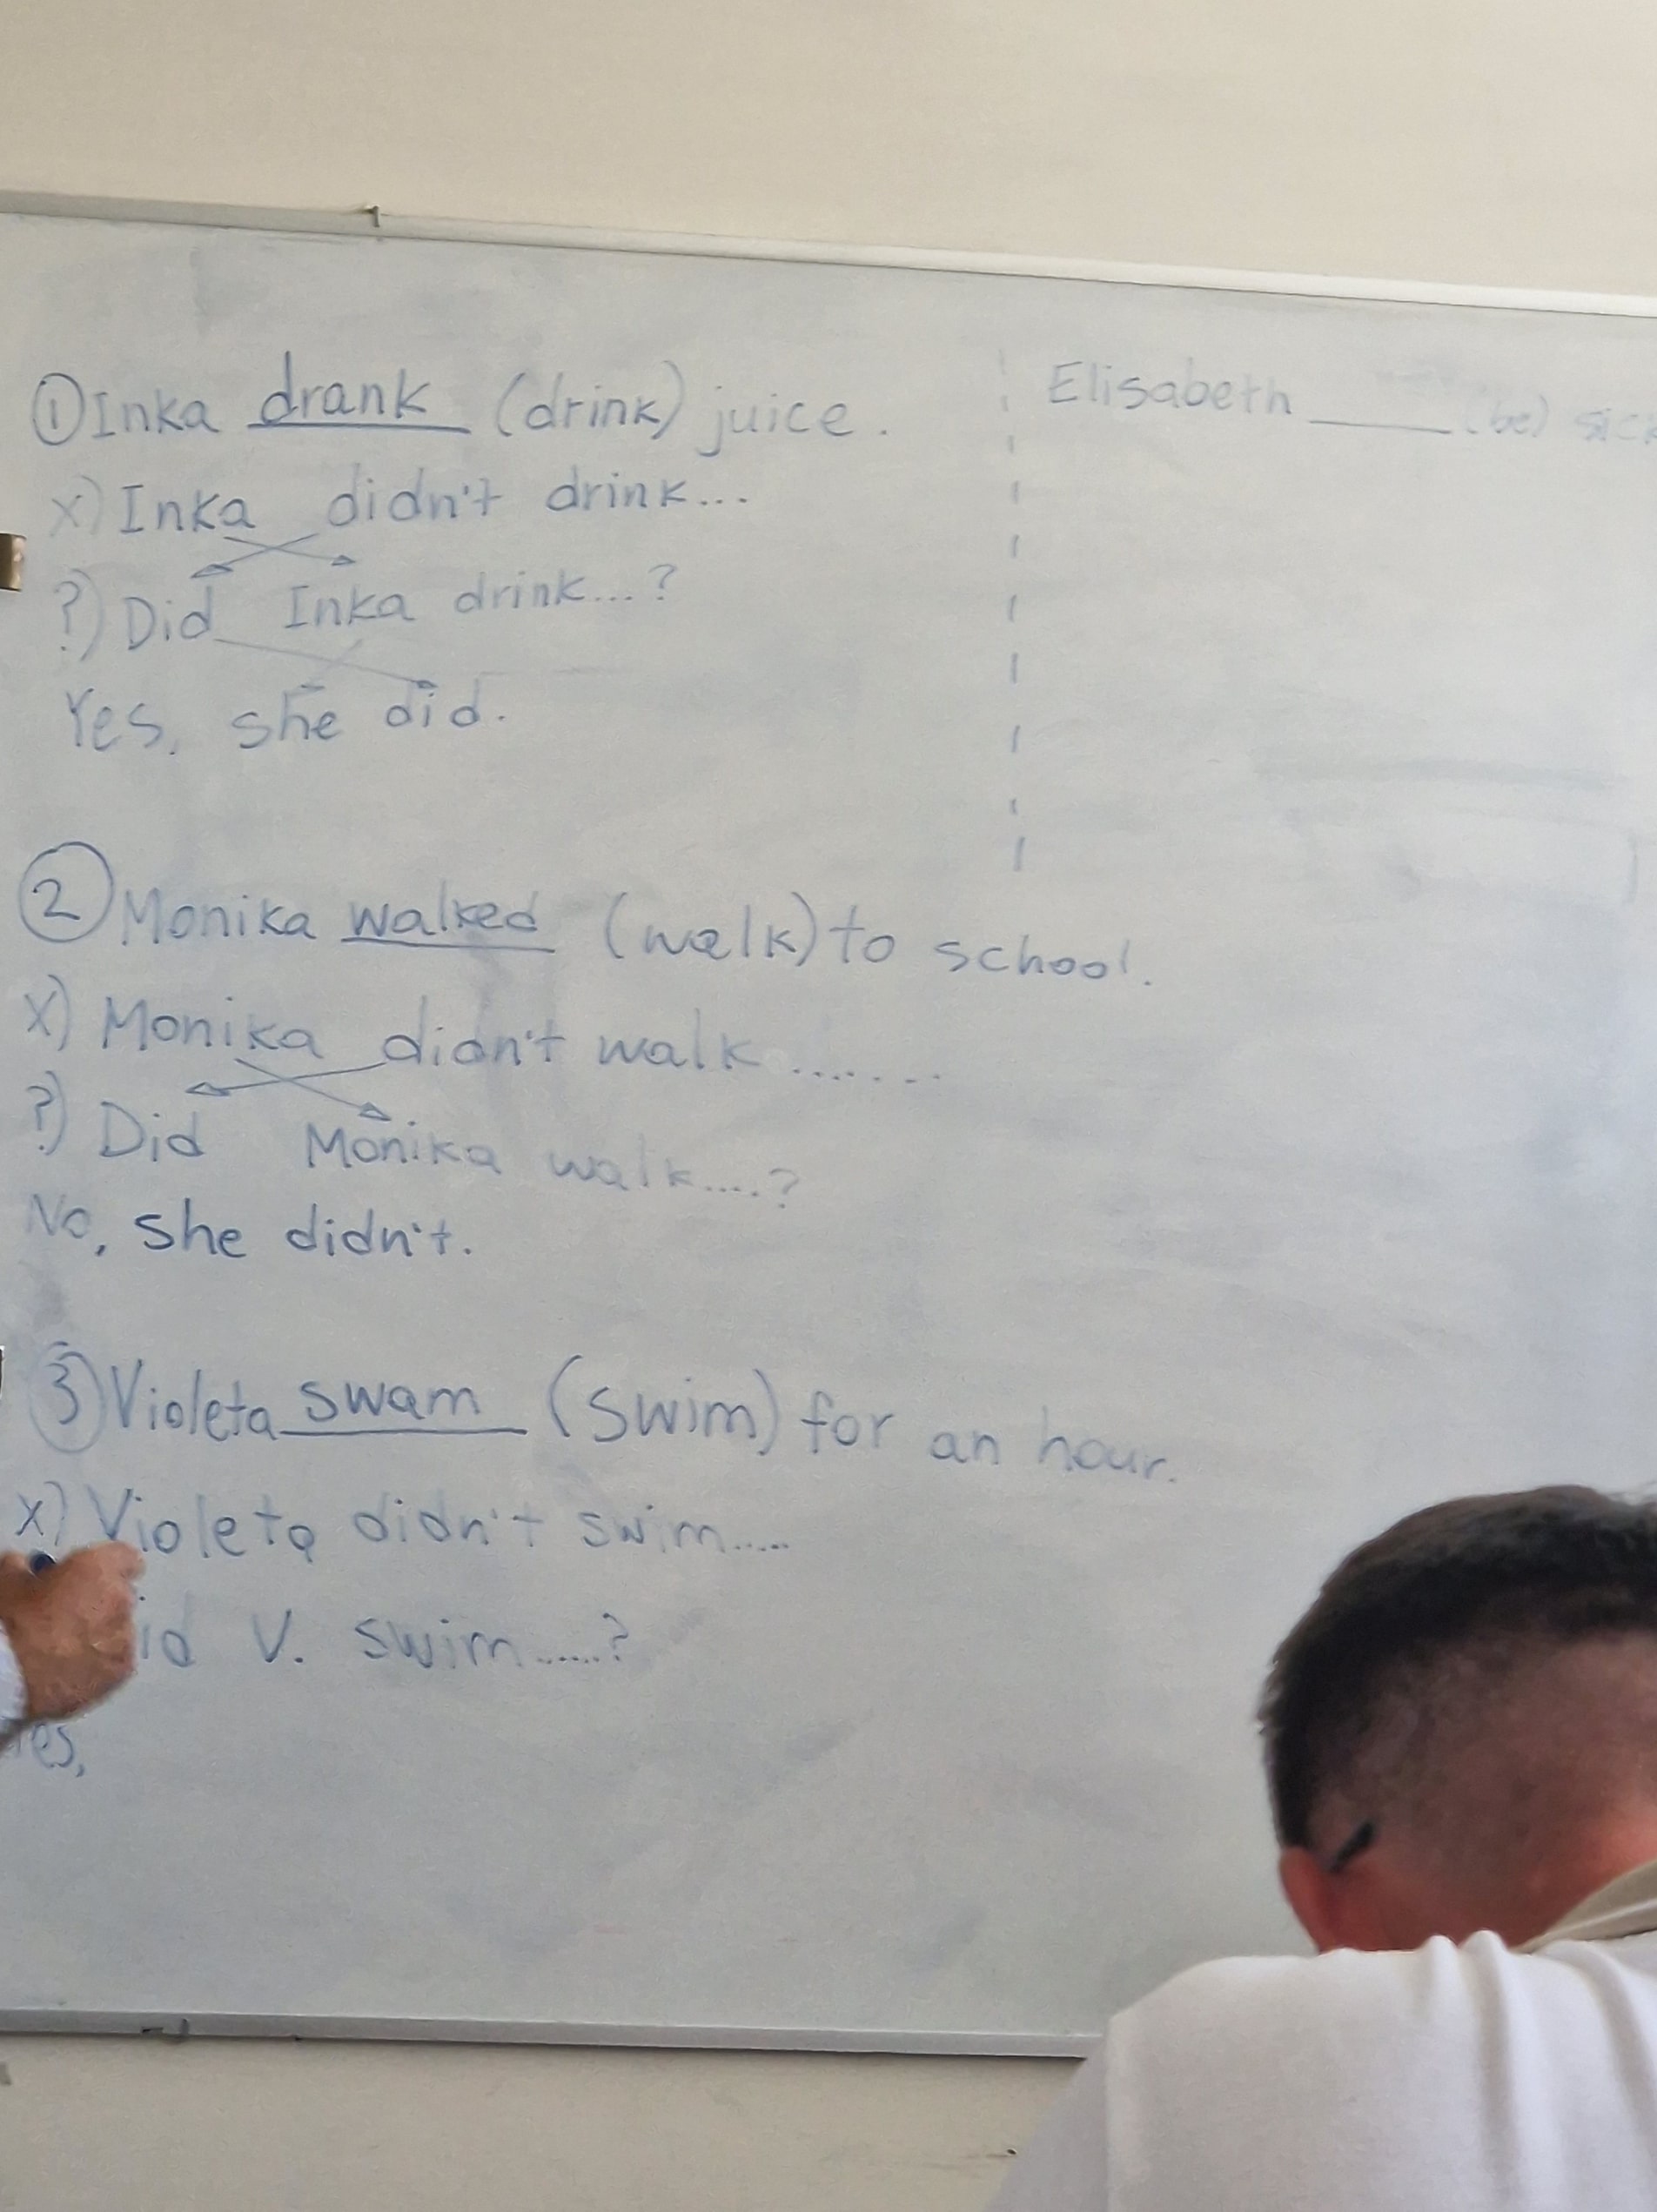 ① Inka drank (drink) juice.
x) Inka didn't drink...
?) Did Inka drink...?
Yes, she did.
② Monika walked (walk) to school.
x) Monika didn't walk.......
?) Did Monika walk....?
No, she didn't.
③ Violeta swam (swim) for an hour.
x) Violeta didn't swim.....
id V. swim.....?
es,
Elisabeth ____ (be) sick